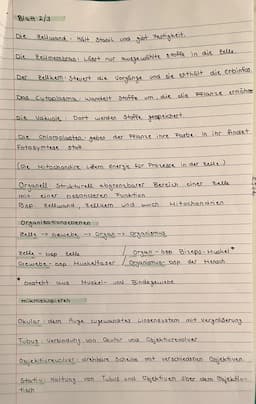 Blatt 2/3
Die Zellwand: Hält Stabil und gibt Festigkeit.
Die Zellmembran: Lässt nur ausgewählte Stoffe in die Zelle.
Der Zellkern: Steuert die Vorgänge und sie enthält die Erbinfos.
Das Cytoplasma: Wandelt Stoffe um, die die Pflanze ernähren
Die Vakuole: Dort werden Stoffe gespeichert.
Die Chloroplasten: geben der Pflanze ihre Farbe. In ihr findet
Fotosyntese statt.
(Die Mitochondrie liefern Energie für Prozesse in der Zelle.)
Organell: Strukturell abgrenzbarer Bereich einer Zelle
mit einer besonderen Funktion
Bsp. Zellwand, Zellkern und auch Mitochondrien
Organisationsebenen
Zelle → Gewebe → Organ → Organismus
Zelle - bsp. Zelle / Organ - bsp. Biceps-Muskel*
Gewebe - bsp. Muskelfaser / Organismus - bsp. der Mensch
* besteht aus Muskel- und Bindegewebe
Mikroskopieren
Okular: dem Auge zugewandtes Linsensystem mit Vergrößerung
Tubus: Verbindung von Okular und Objektivrevolver
Objektivrevolver: drehbare Scheibe mit verschiedenen Objektiven
Stativ: Haltung von Tubus und Objektiven über dem Objektti-
tisch